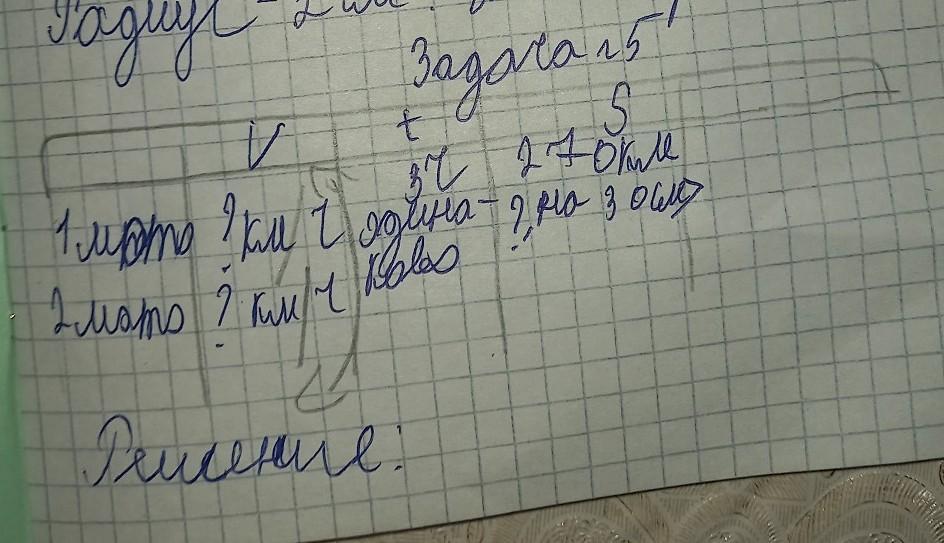 Радиус - 2 см.
Задача №5
V t S
3ч 270км
1 мото ? км ч одина- ? на 30км>
2 мото ? км ч ково
Решение: